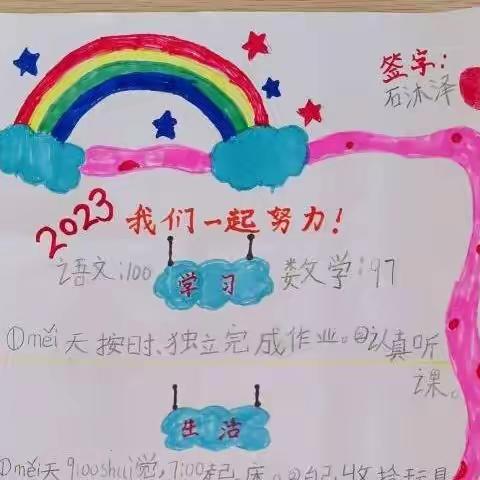 签字：
石沐泽
2023 我们一起努力！
语文：100 学习 数文学：97
①měi天按时、独立完成作业。②认真听课。
生活
①měi天9:00shuì觉，7:00起床。②自己收拾玩具